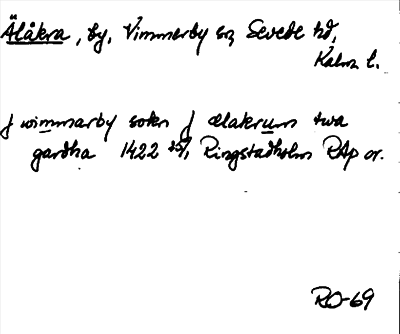 Älåkra, by, Vimmerby sn, Sevede hd,
Kalm l.
J wimmarby sokn J ælakrum twa
gardha 1422 25/1 Ringstadholm RAp or.
RO-69